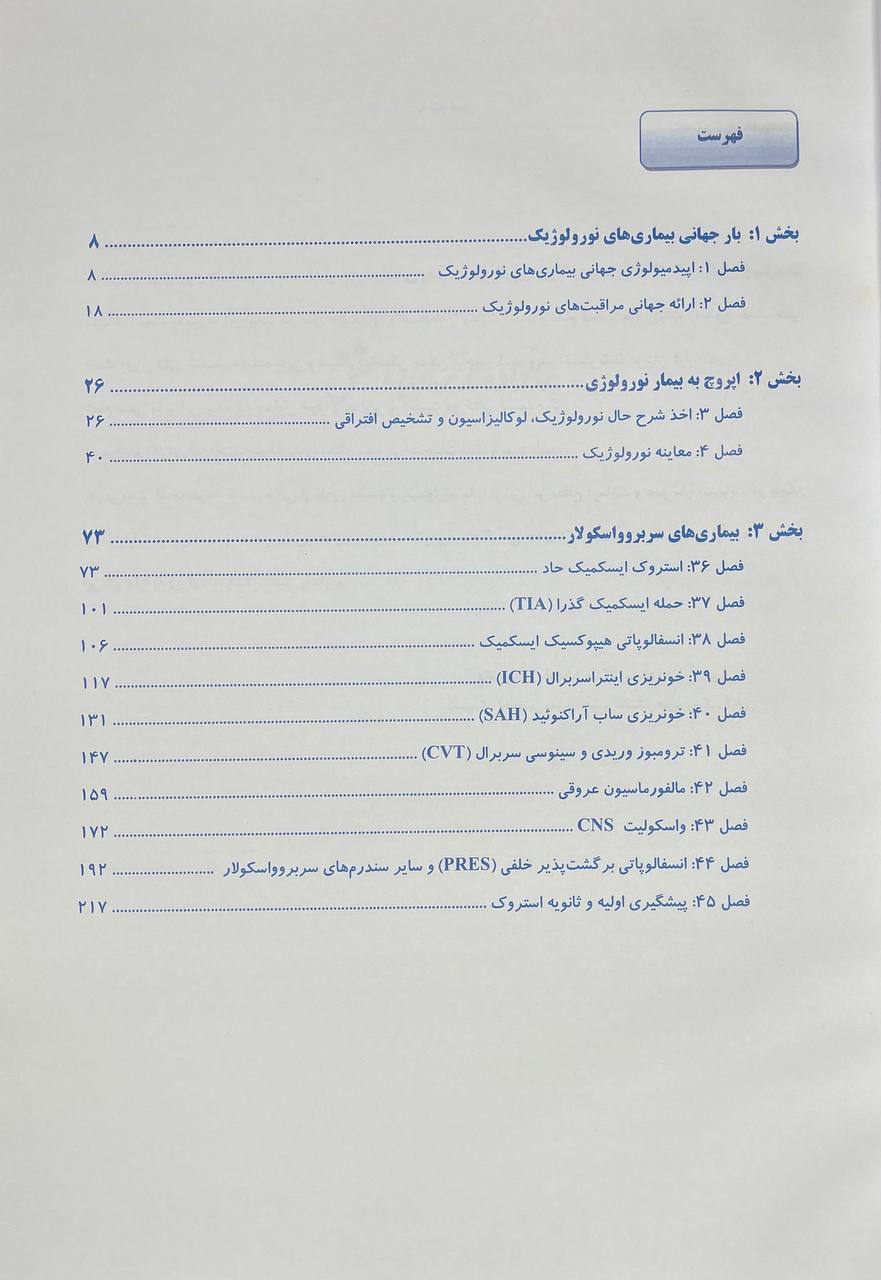 فهرست
بخش ۱: بار جهانی بیماری‌های نورولوژیک ........ ۸
فصل ۱: اپیدمیولوژی جهانی بیماری‌های نورولوژیک ........ ۸
فصل ۲: ارائه جهانی مراقبت‌های نورولوژیک ........ ۱۸
بخش ۲: اپروچ به بیمار نورولوژی ........ ۲۶
فصل ۳: اخذ شرح حال نورولوژیک، لوکالیزاسیون و تشخیص افتراقی ........ ۲۶
فصل ۴: معاینه نورولوژیک ........ ۴۰
بخش ۳: بیماری‌های سربروواسکولار ........ ۷۳
فصل ۳۶: استروک ایسکمیک حاد ........ ۷۳
فصل ۳۷: حمله ایسکمیک گذرا (TIA) ........ ۱۰۱
فصل ۳۸: انسفالوپاتی هیپوکسیک ایسکمیک ........ ۱۰۶
فصل ۳۹: خونریزی اینتراسربرال (ICH) ........ ۱۱۷
فصل ۴۰: خونریزی ساب آراکنوئید (SAH) ........ ۱۳۱
فصل ۴۱: ترومبوز وریدی و سینوسی سربرال (CVT) ........ ۱۴۷
فصل ۴۲: مالفورماسیون عروقی ........ ۱۵۹
فصل ۴۳: واسکولیت CNS ........ ۱۷۲
فصل ۴۴: انسفالوپاتی برگشت‌پذیر خلفی (PRES) و سایر سندرم‌های سربروواسکولار ........ ۱۹۲
فصل ۴۵: پیشگیری اولیه و ثانویه استروک ........ ۲۱۷